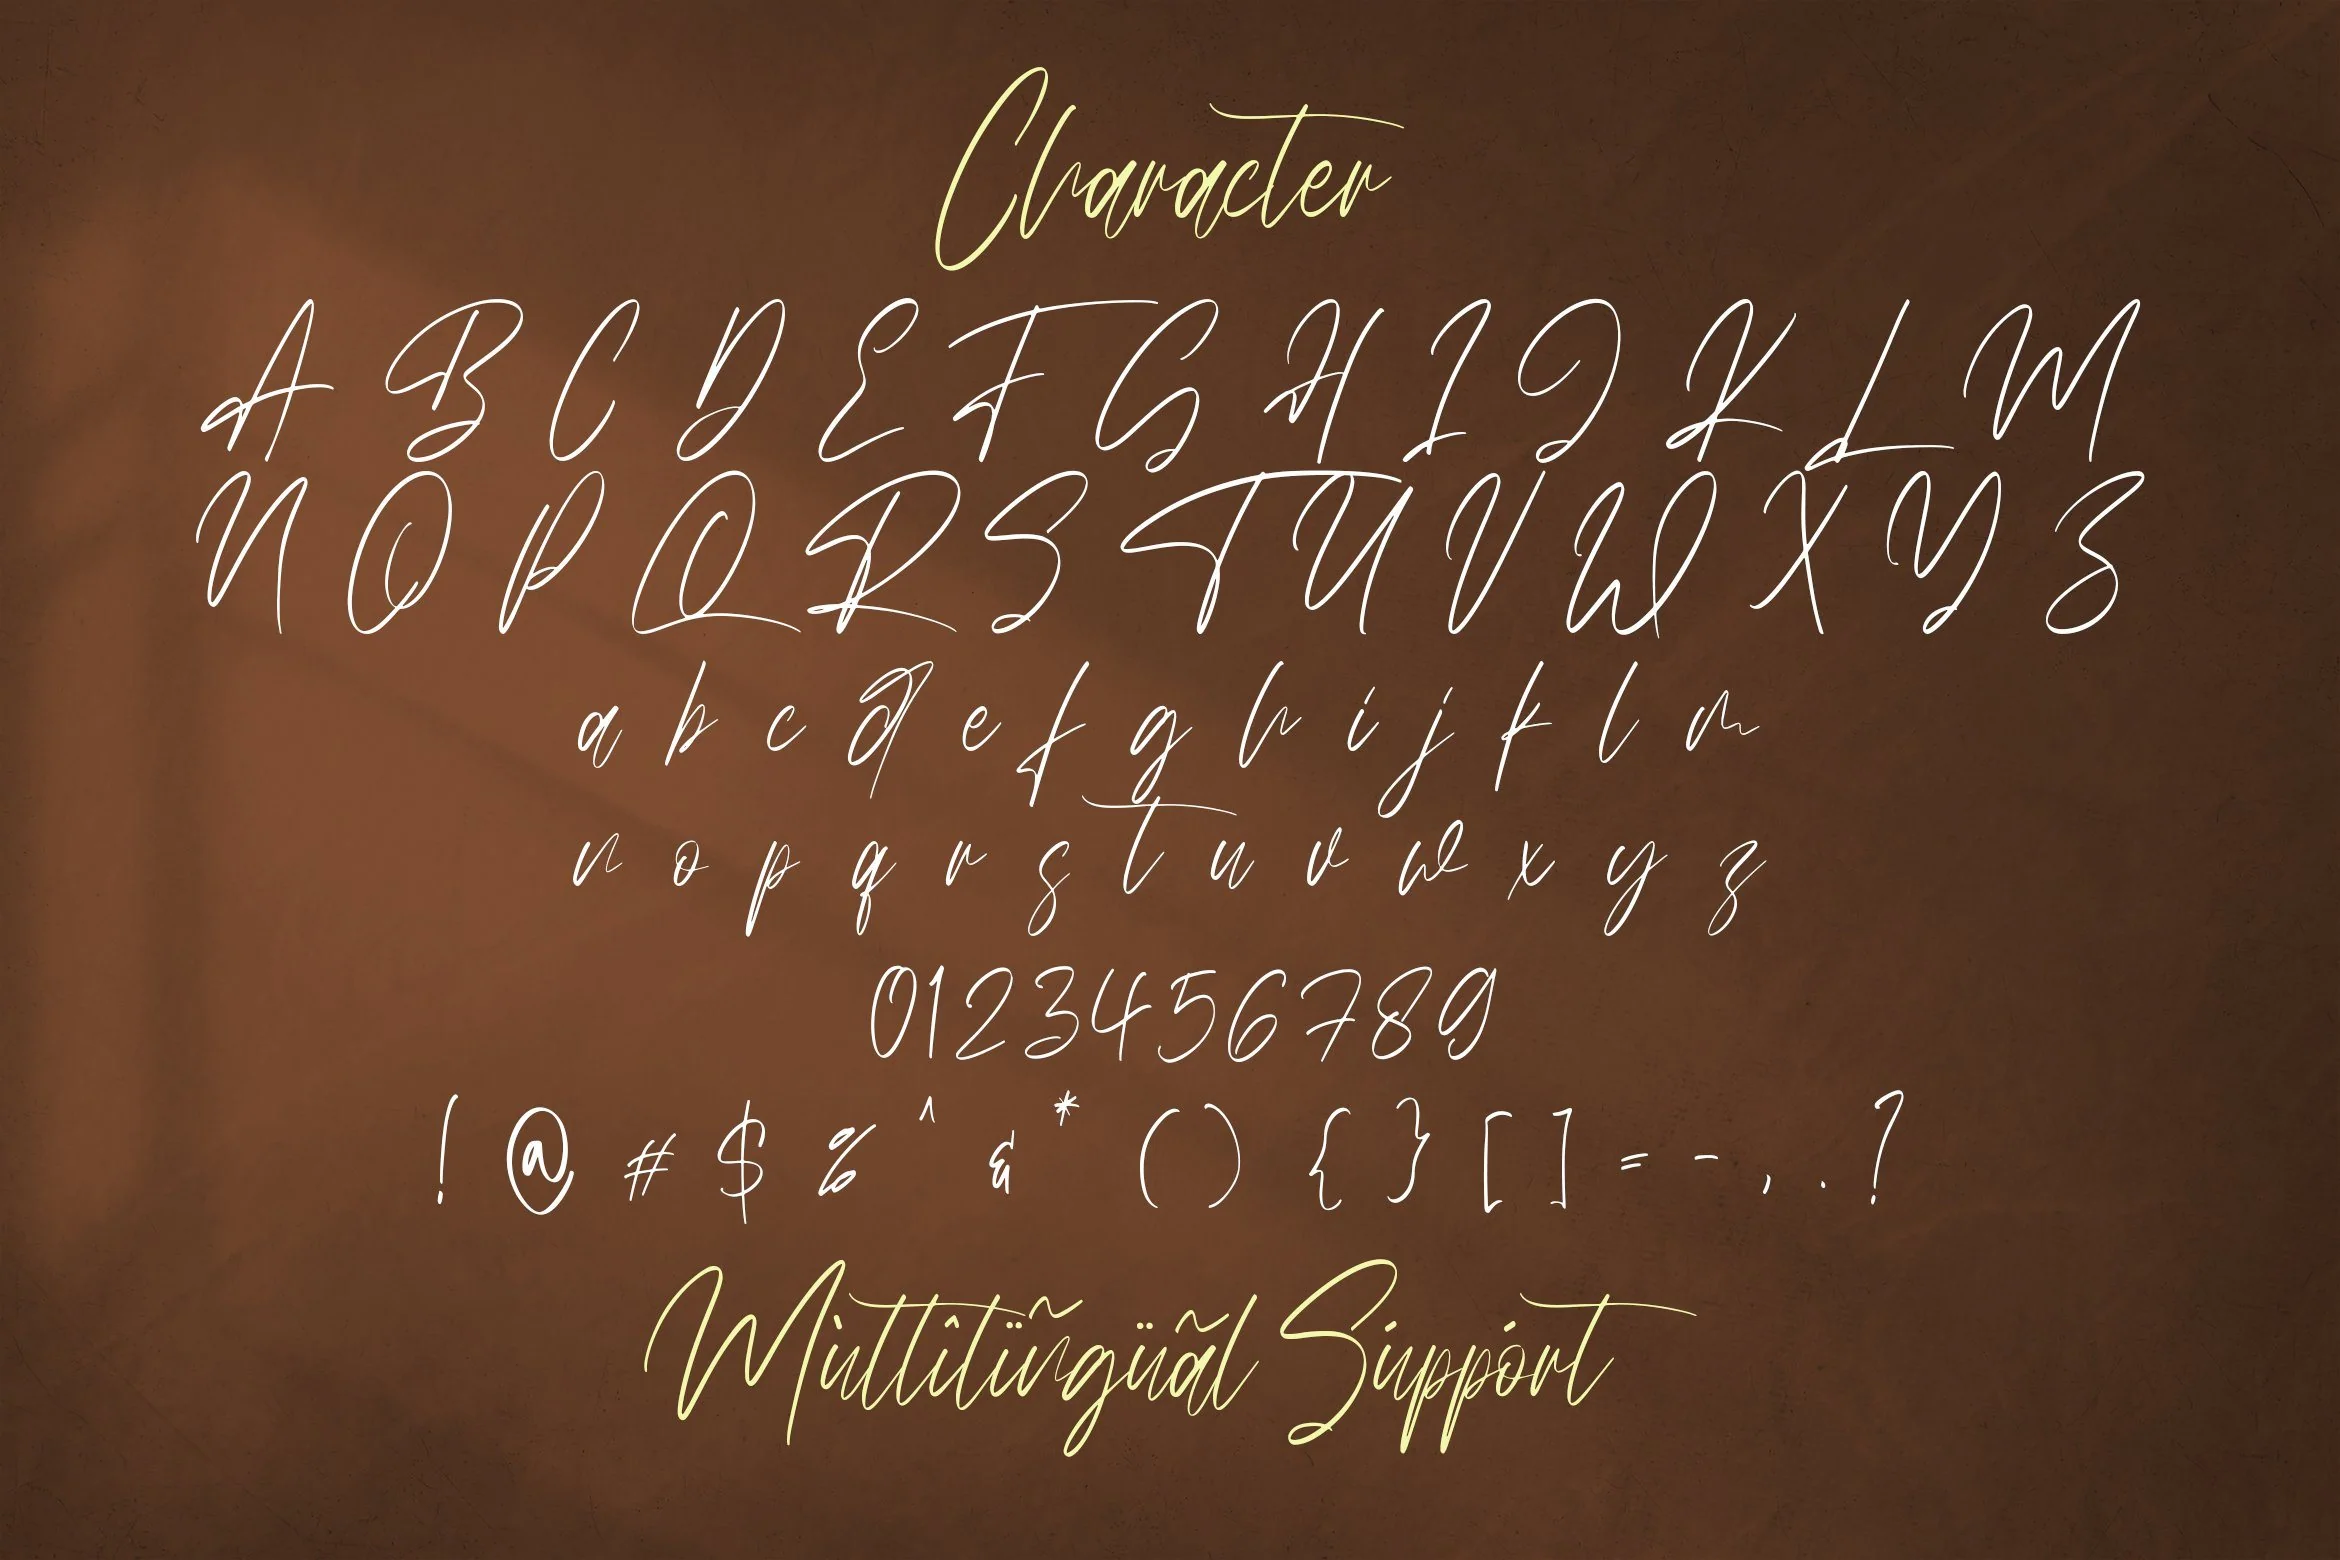 Character
A B C D E F G H I J K L M
N O P Q R S T U V W X Y Z
a b c d e f g h i j k l m
n o p q r s t u v w x y z
0123456789
! @ # $ % ^ & * ( ) { } [ ] = - , . ?
Mùltîlïñgüãl Súppórt